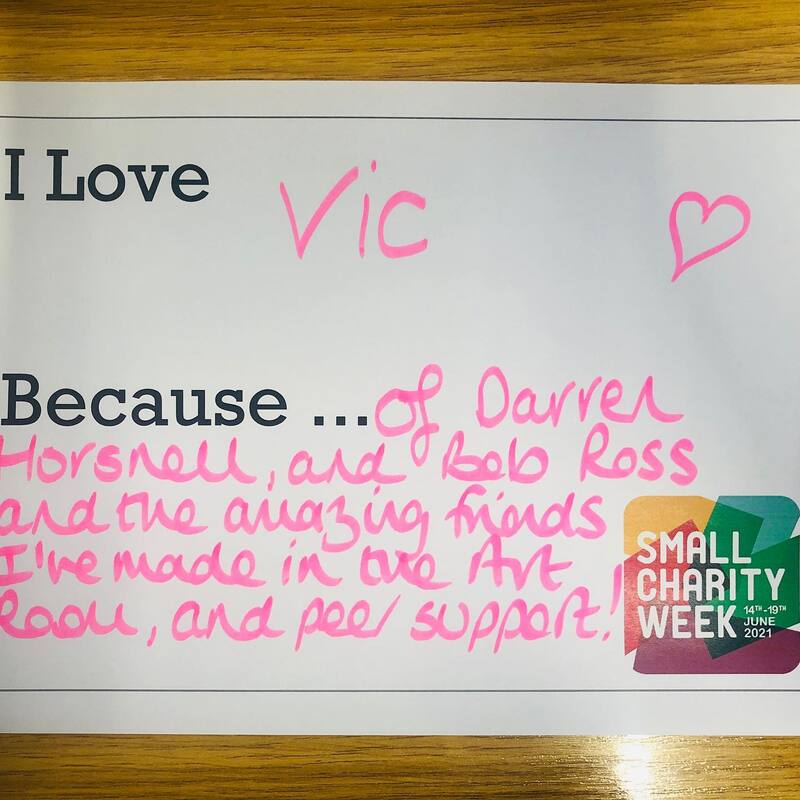 I Love Vic
Because ... of Darren
Horsnell, and Bob Ross
and the amazing friends
I've made in the Art
Room, and peer support!
SMALL
CHARITY
WEEK
14TH-19TH
JUNE
2021